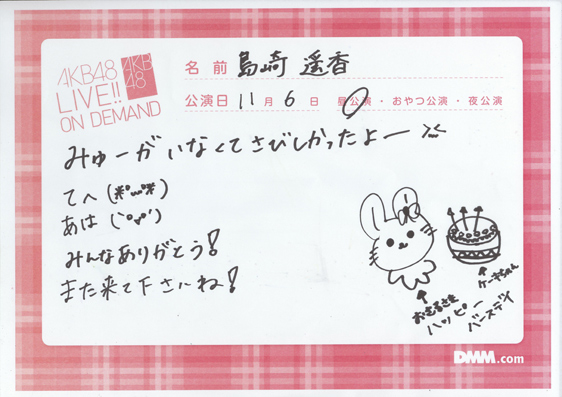 AKB48
LIVE!!
ON DEMAND
AKB
48
名前 島崎 遥香
公演日 11月6日 昼公演・おやつ公演・夜公演
みゅーがいなくてさびしかったよー
てへ
あは
みんなありがとう!
また来て下さいね!
ケーキちゃん
ハッピー
バースデイ
DMM.com